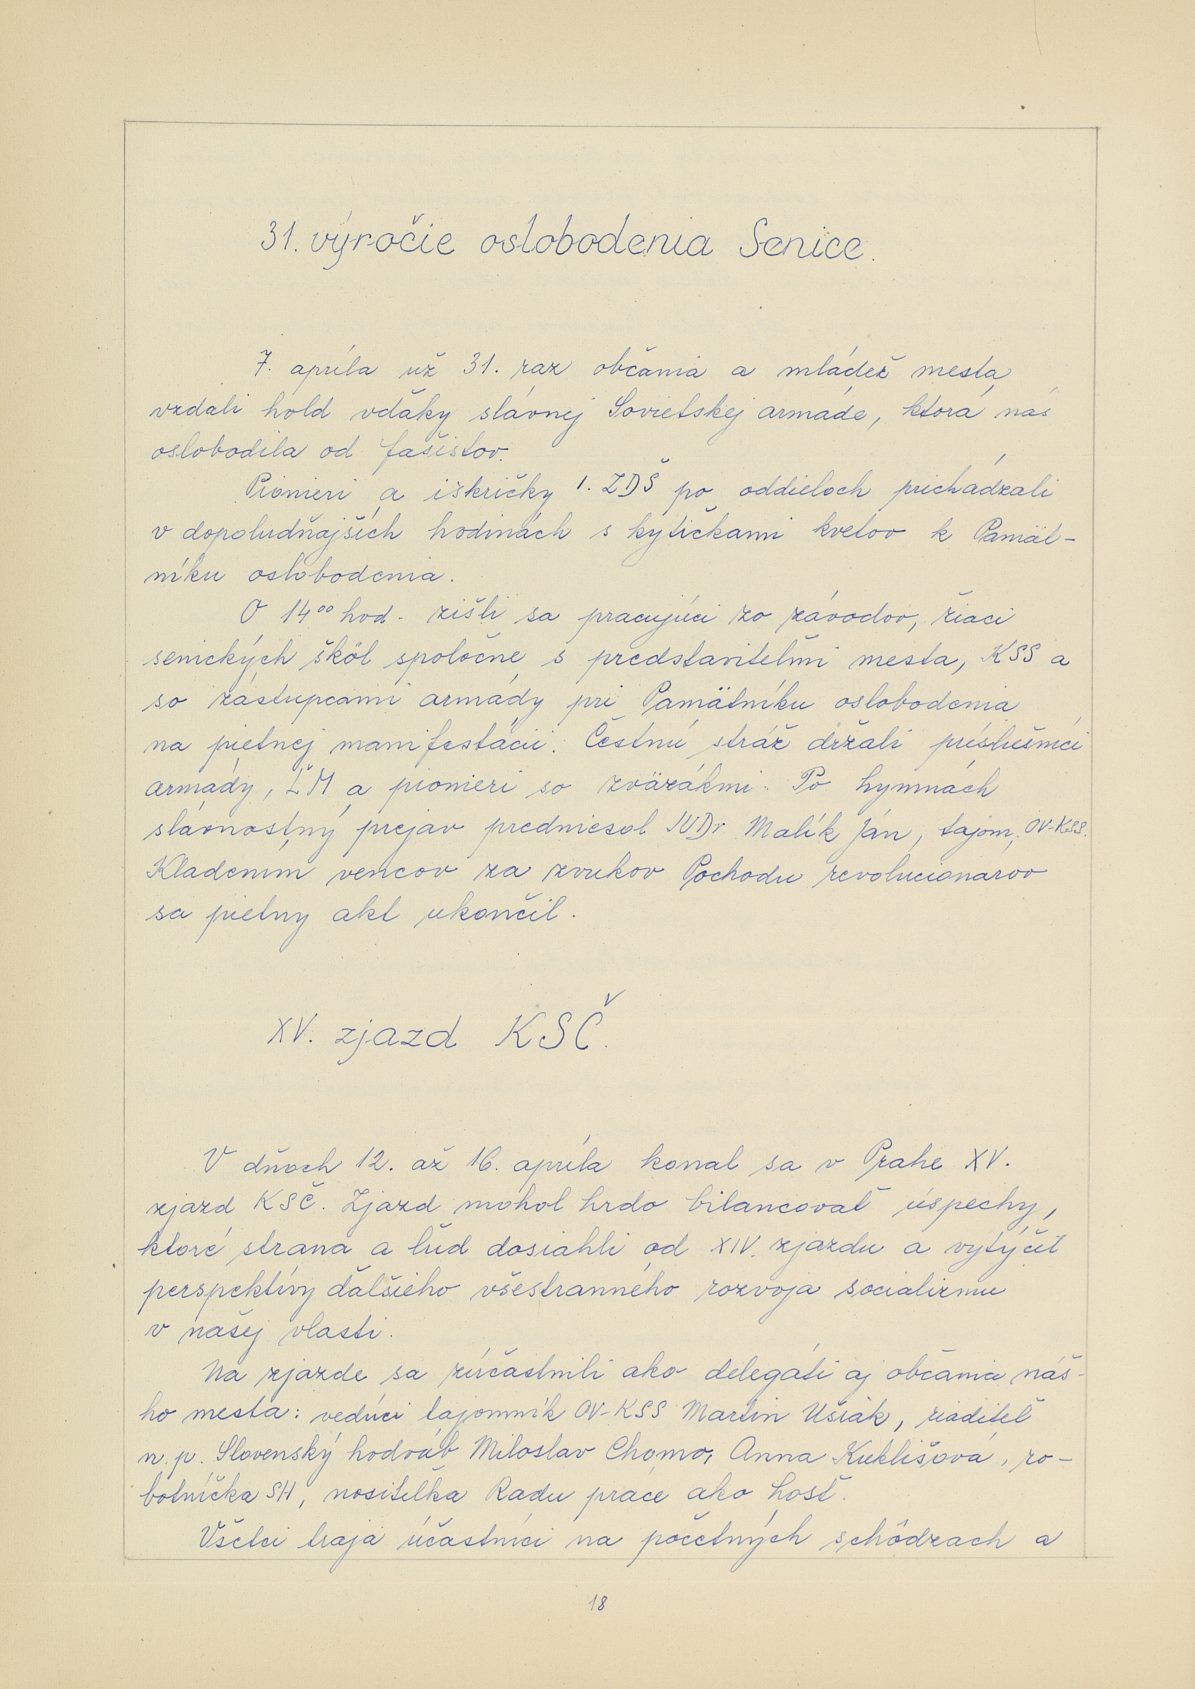 31. výročie oslobodenia Senice.
7. apríla už 31. raz občania a mládež mesta
vzdali hold vďaky slávnej Sovietskej armáde, ktorá nás
oslobodila od fašistov.
Pionieri a iskričky 1. ZDŠ po oddieloch prichádzali
v dopoludňajších hodinách s kytičkami kvetov k Pamät-
níku oslobodenia.
O 14⁰⁰ hod. zišli sa pracujúci zo závodov, žiaci
senických škôl spoločne s predstaviteľmi mesta, KSS a
so zástupcami armády pri Pamätníku oslobodenia
na pietnej manifestácii. Čestnú stráž držali príslušníci
armády, ĽM a pionieri so zväzákmi. Po hymnách
slávnostný prejav predniesol JUDr Malík Ján, tajom. OV-KSS.
Kladením vencov za zvukov Pochodu revolucionárov
sa pietny akt ukončil.
XV. zjazd KSČ.
V dňoch 12. až 16. apríla konal sa v Prahe XV.
zjazd KSČ. Zjazd mohol hrdo bilancovať úspechy,
ktoré strana a ľud dosiahli od XIV. zjazdu a vytýčil
perspektívy ďalšieho všestranného rozvoja socializmu
v našej vlasti.
Na zjazde sa zúčastnili ako delegáti aj občania náš-
ho mesta: vedúci tajomník OV-KSS Martin Ušiak, riaditeľ
n. p. Slovenský hodváb Miloslav Chomo, Anna Kuklišová, ro-
botníčka SH, nositeľka Radu práce ako hosť.
Všetci traja účastníci na početných schôdzach a
18